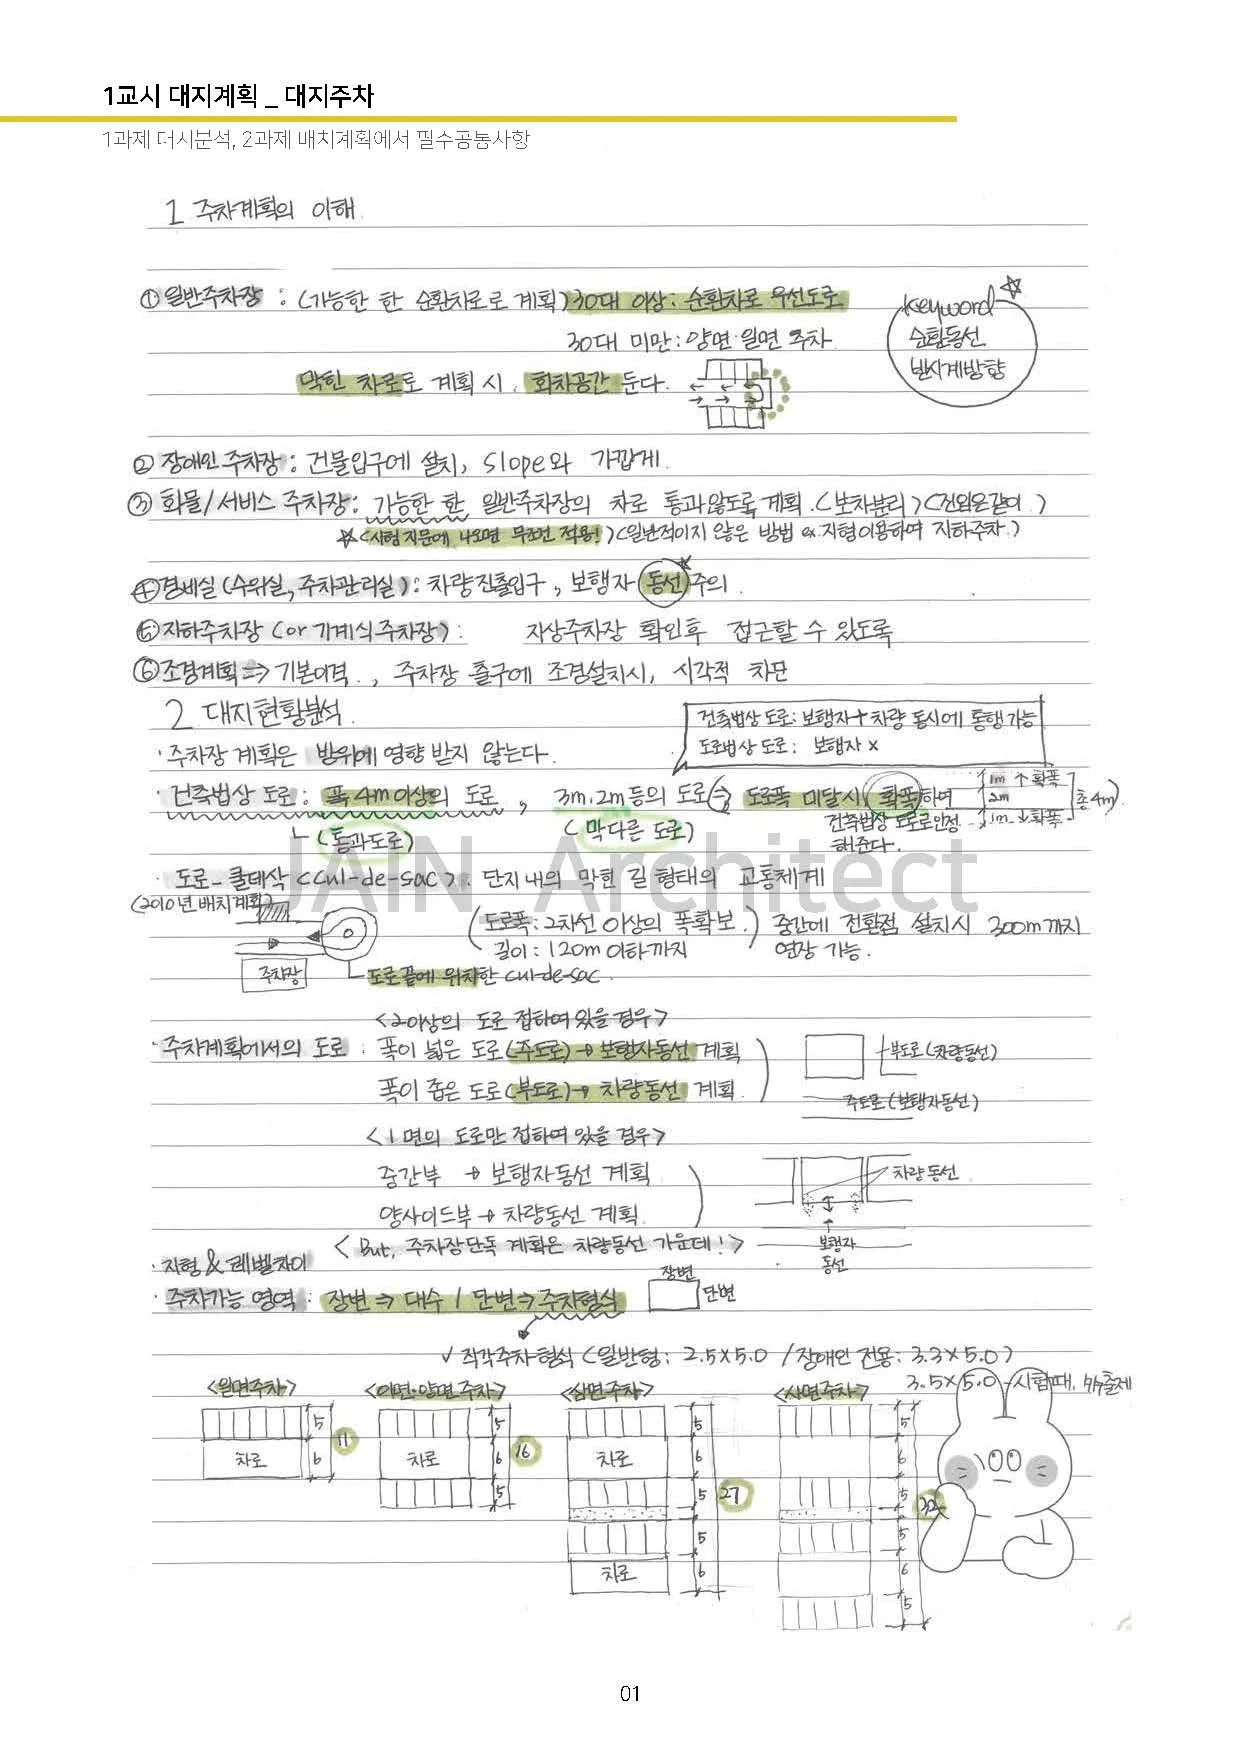 1교시 대지계획 _ 대지주차
1과제 더시분석, 2과제 배치계획에서 필수공통사항
1 주차계획의 이해.
① 일반주차장 : (가능한 한 순환차로로 계획) 30대 이상: 순환차로 우선도로
30대 미만: 양면·일면 주차.
막힌 차로로 계획 시, 회차공간 둔다.
keyword
순환동선
반시계방향
② 장애인주차장: 건물입구에 설치, slope와 가깝게.
③ 화물/서비스 주차장: 가능한 한, 일반주차장의 차로 통과않도록 계획. (보차분리)
☆(시험지문에 나오면 무조건 적용!) (일반적이지 않은 방법 ex. 지형이용하여 지하주차.)
④ 경비실 (수위실, 주차관리실): 차량진출입구, 보행자 동선 주의.
⑤ 지하주차장 (or 기계식주차장): 지상주차장 확인후 접근할 수 있도록
⑥ 조경계획 ⇒ 기본이격., 주차장 출구에 조경설치시, 시각적 차단
2 대지현황분석.
건축법상 도로: 보행자+차량 동시에 통행가능
도로법상 도로: 보행자 x
· 주차장 계획은 방위에 영향 받지 않는다.
· 건축법상 도로: 폭 4m이상의 도로, 3m, 2m 등의 도로 ⇒ 도로폭 미달시 확폭하여
건축법상 도로로 인정
해준다.
1m ↑확폭
2m
1m ↓확폭
(총4m).
(통과도로)
(막다른 도로)
JAIN_Architect
· 도로_쿨데삭 <cul-de-sac>. 단지내의 막힌 길 형태의 교통체계
(2010년 배치계획)
(도로폭: 2차선 이상의 폭확보.
길이: 120m 이하까지
중간에 전환점 설치시 300m까지
연장 가능.
주차장
도로끝에 위치한 cul-de-sac.
<2이상의 도로 접하여 있을 경우>
· 주차계획에서의 도로: 폭이 넓은 도로(주도로)→보행자동선 계획
폭이 좁은 도로(부도로)→차량동선 계획.
부도로(차량동선)
주도로(보행자동선)
<1면의 도로만 접하여 있을 경우>
중간부 → 보행자동선 계획.
양사이드부 → 차량동선 계획.
차량동선
보행자
동선
<But, 주차장단독 계획은 차량동선 가운데!>
· 지형 & 레벨차이
· 주차가능 영역: 장변⇒대수 / 단변⇒주차형식
장변
단변
✓ 직각주차형식 (일반형: 2.5×5.0 / 장애인 전용: 3.3×5.0)
3.5×5.0 - 시험때,
<일면주차>
<이면·양면주차>
<삼면주차>
<사면주차>
차로
5
6
11
차로
5
6
5
16
차로
차로
5
6
5
5
6
27
5
6
5
5
6
5
32
01